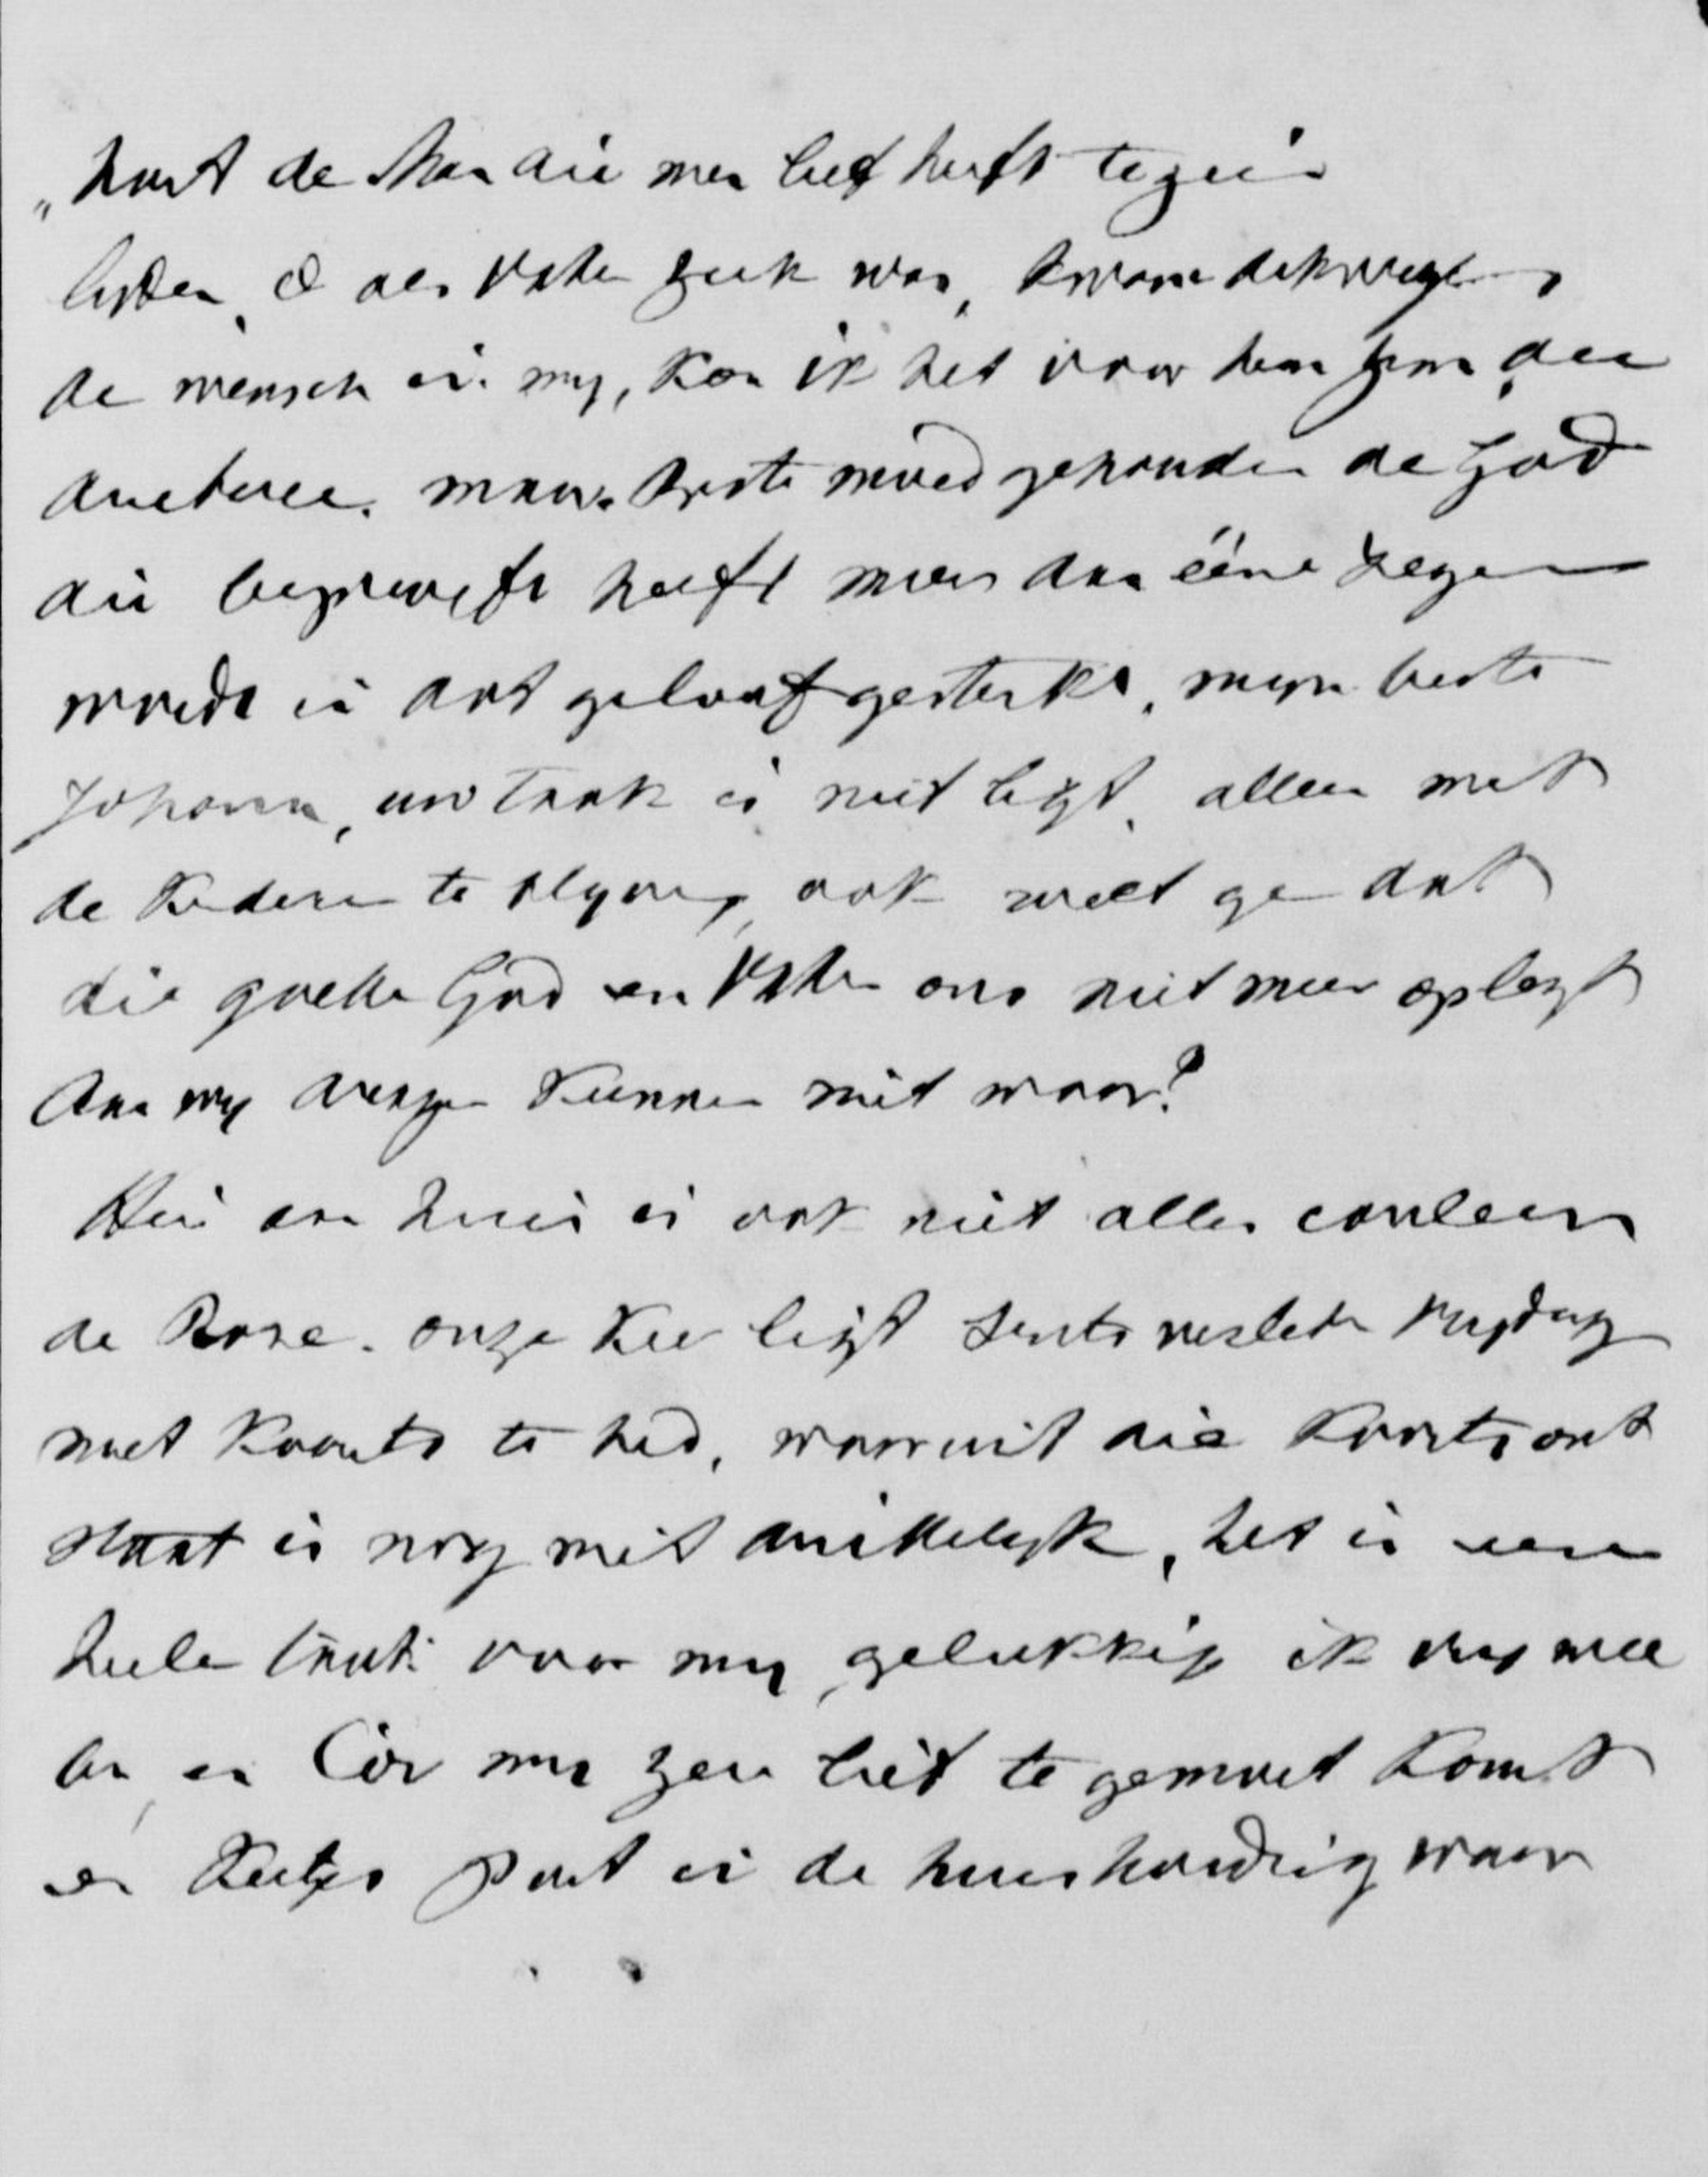 „hart de Man die men lief heeft te zien
lyden, O als Vader ziek was, kwam dikwyls
de mensch in my, kon ik het voor hem
maar. Beste moed gehouden de God
die beproeft heeft meer dan eéne zegen
wordt in dat geloof gesterkt, myn beste
Johanna, uw taak is niet ligt, alleen met
de Kinderen te blyven, ook weet ge dat
die goede God en Vader ons niet meer oplegt
dan wy dragen kunnen niet waar?
Hier in huis is ook niet alles couleur
de Rose. onze Kee ligt sints verleden Vrydag
met Koorts te bed, waaruit die Koorts ont
staat is nog niet duidelyk, het is een
heele taak voor my, gelukkig ik mee
en Cor me zeer liet te gemoet Komt
en Keetjes Part in de huishouding waar